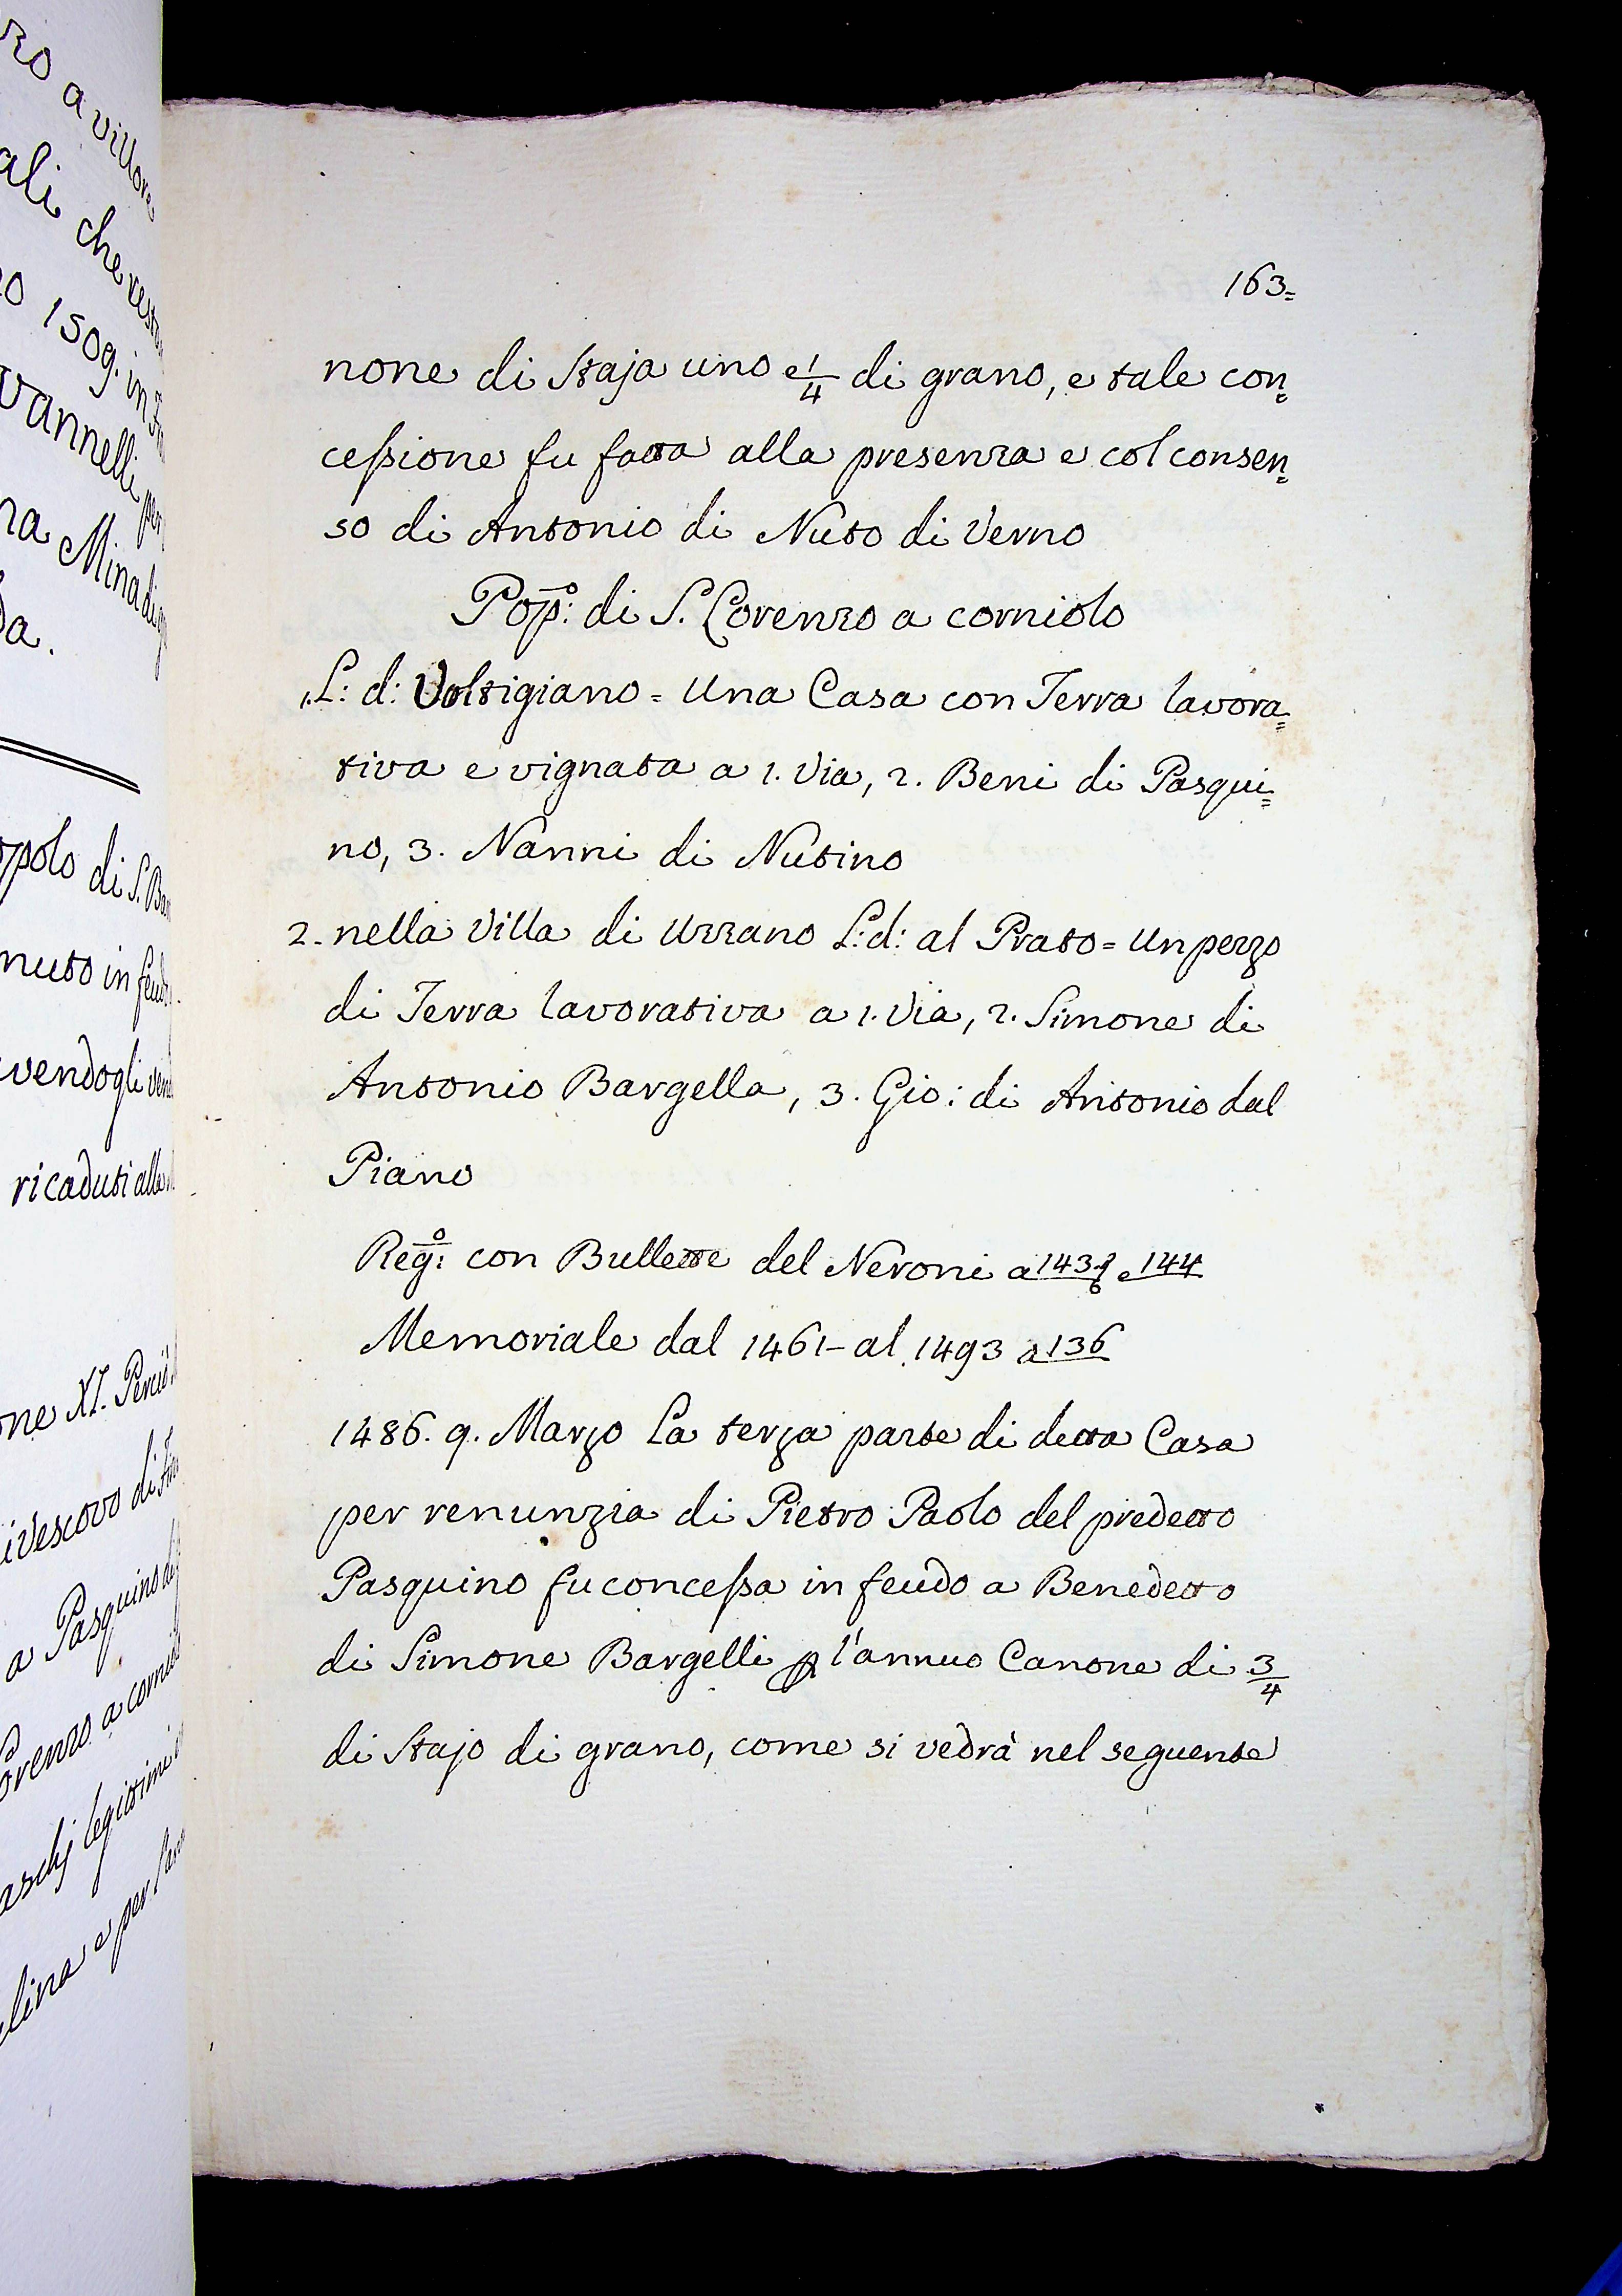 163=
none di Staja uno e 1/4 di grano, e tale con=
cessione fu fatta alla presenza e col consen=
so di Antonio di Nuto di Verno
Pop:o di S. Lorenzo a corniolo
1. L: d: Voltigiano = Una Casa con Terra lavora=
tiva e vignata a 1. Via, 2. Beni di Pasqui=
no, 3. Nanni di Nutino
2. nella Villa di Uzzano L: d: al Prato = Un pezzo
di Terra lavorativa a 1. Via, 2. Simone di
Antonio Bargella, 3. Gio: di Antonio dal
Piano
Reg:o con Bullette del Neroni a 143 e 144
Memoriale dal 1461 - al 1493 a 136
1486. 9. Marzo La terza parte di detta Casa
per renunzia di Pietro Paolo del predetto
Pasquino fu concessa in feudo a Benedetto
di Simone Bargelli p l'annuo Canone di 3/4
di Stajo di grano, come si vedrà nel seguente
ro a
ali che
1509. in
vannelli per
na Mina di
da.
opolo di S.
nuto in feudo
vendogli
ricaduti alla
one XI.
ivescovo di
a Pasquino
Lorenzo a
legittimi
e per